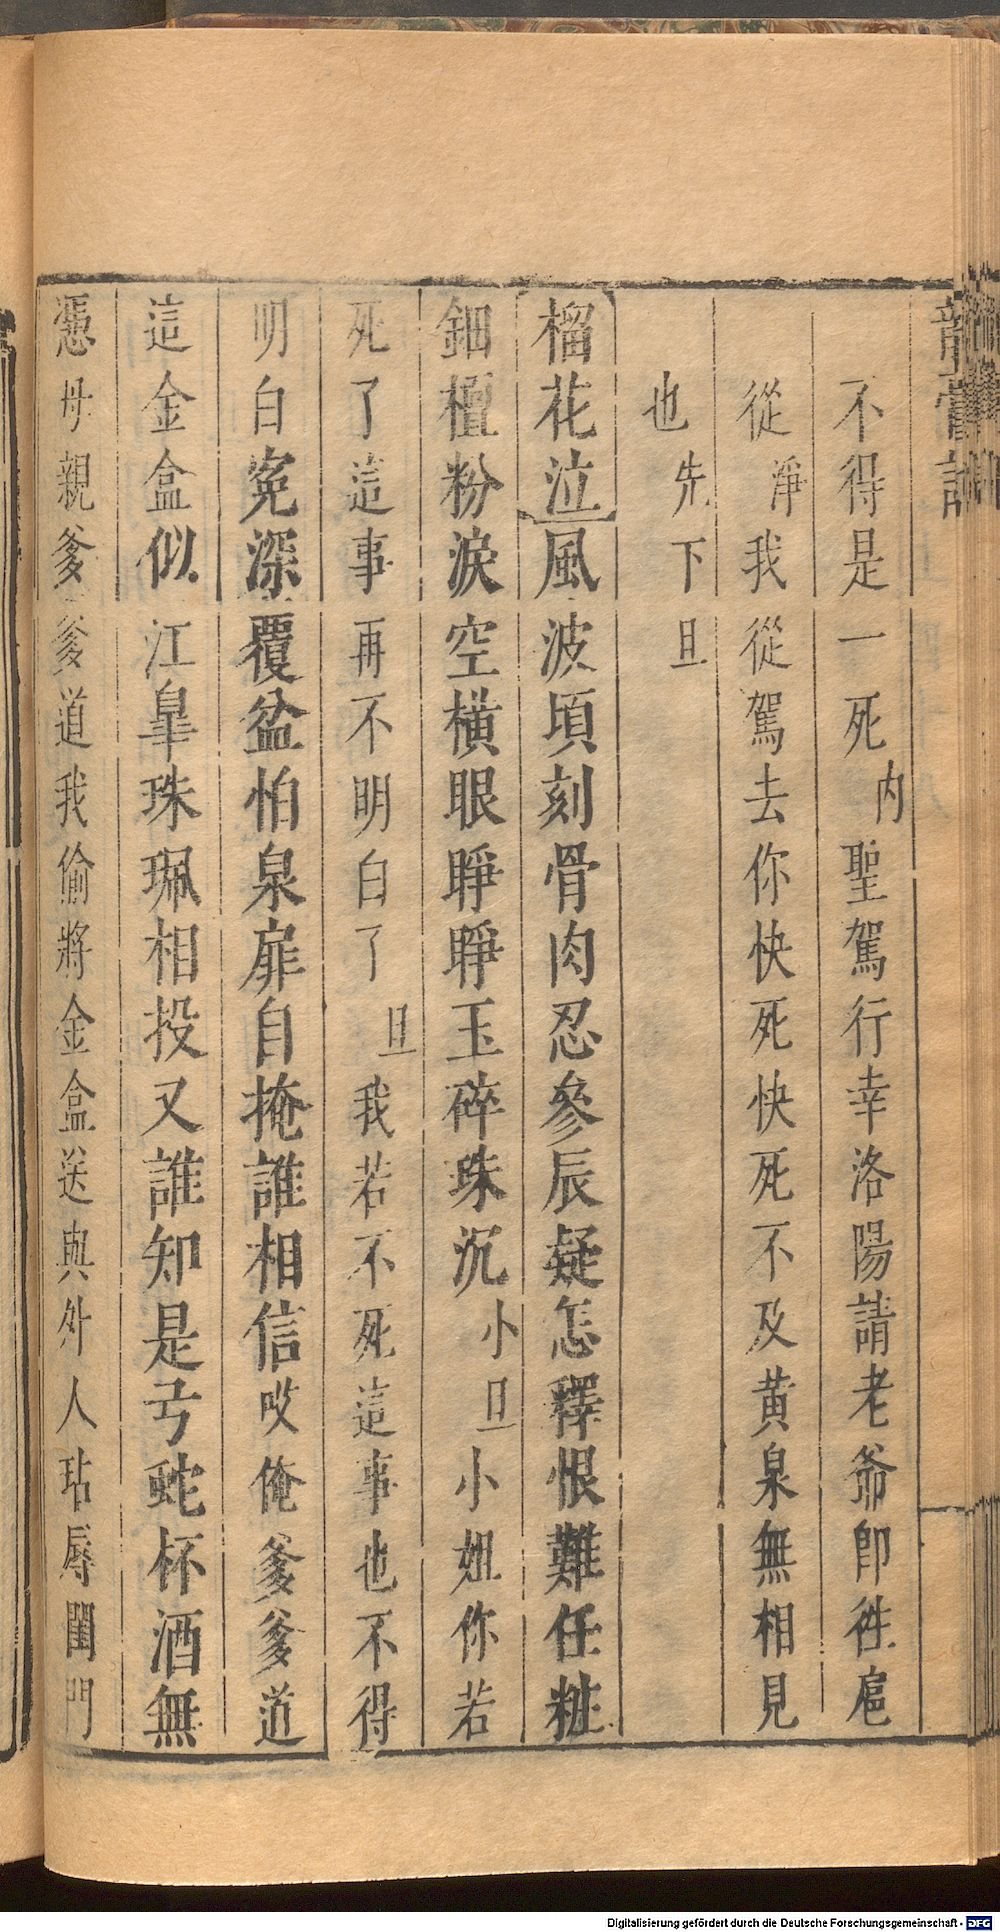 龍膏記
不得是一死内聖駕行幸洛陽請老爺卽徃扈
從淨我從駕去你快死快死不及黄泉無相見
也先下旦
榴花泣風波頃刻骨肉忍參辰疑怎釋恨難任粧
鈿檀粉淚空橫眼睜睜玉碎珠沉小旦小姐你若
死了這事再不明白了旦我若不死這事也不得
明白寃深覆盆怕泉扉自掩誰相信哎俺爹爹道
這金盒似江臯珠珮相投又誰知是弓蛇杯酒無
慿母親爹爹道我偷將金盒送與外人玷辱閨門
Digitalisierung gefördert durch die Deutsche Forschungsgemeinschaft - DFG